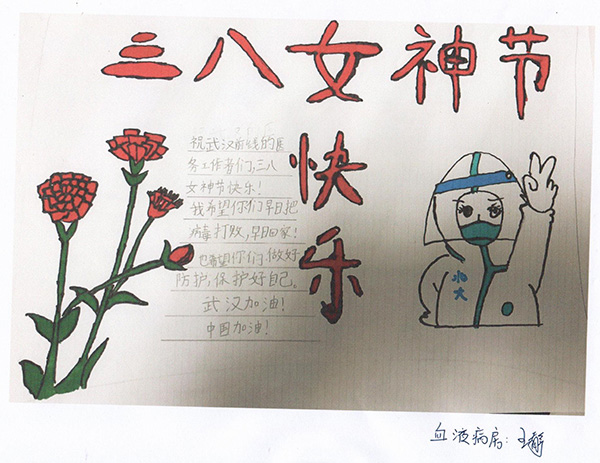 三八女神节
快乐
祝武汉前线的医
务工作者们,三八
女神节快乐!
我希望你们早日把
病毒打败,早日回家!
也希望你们做好
防护,保护好自己。
武汉加油!
中国加油!
北大
血液病房:王静